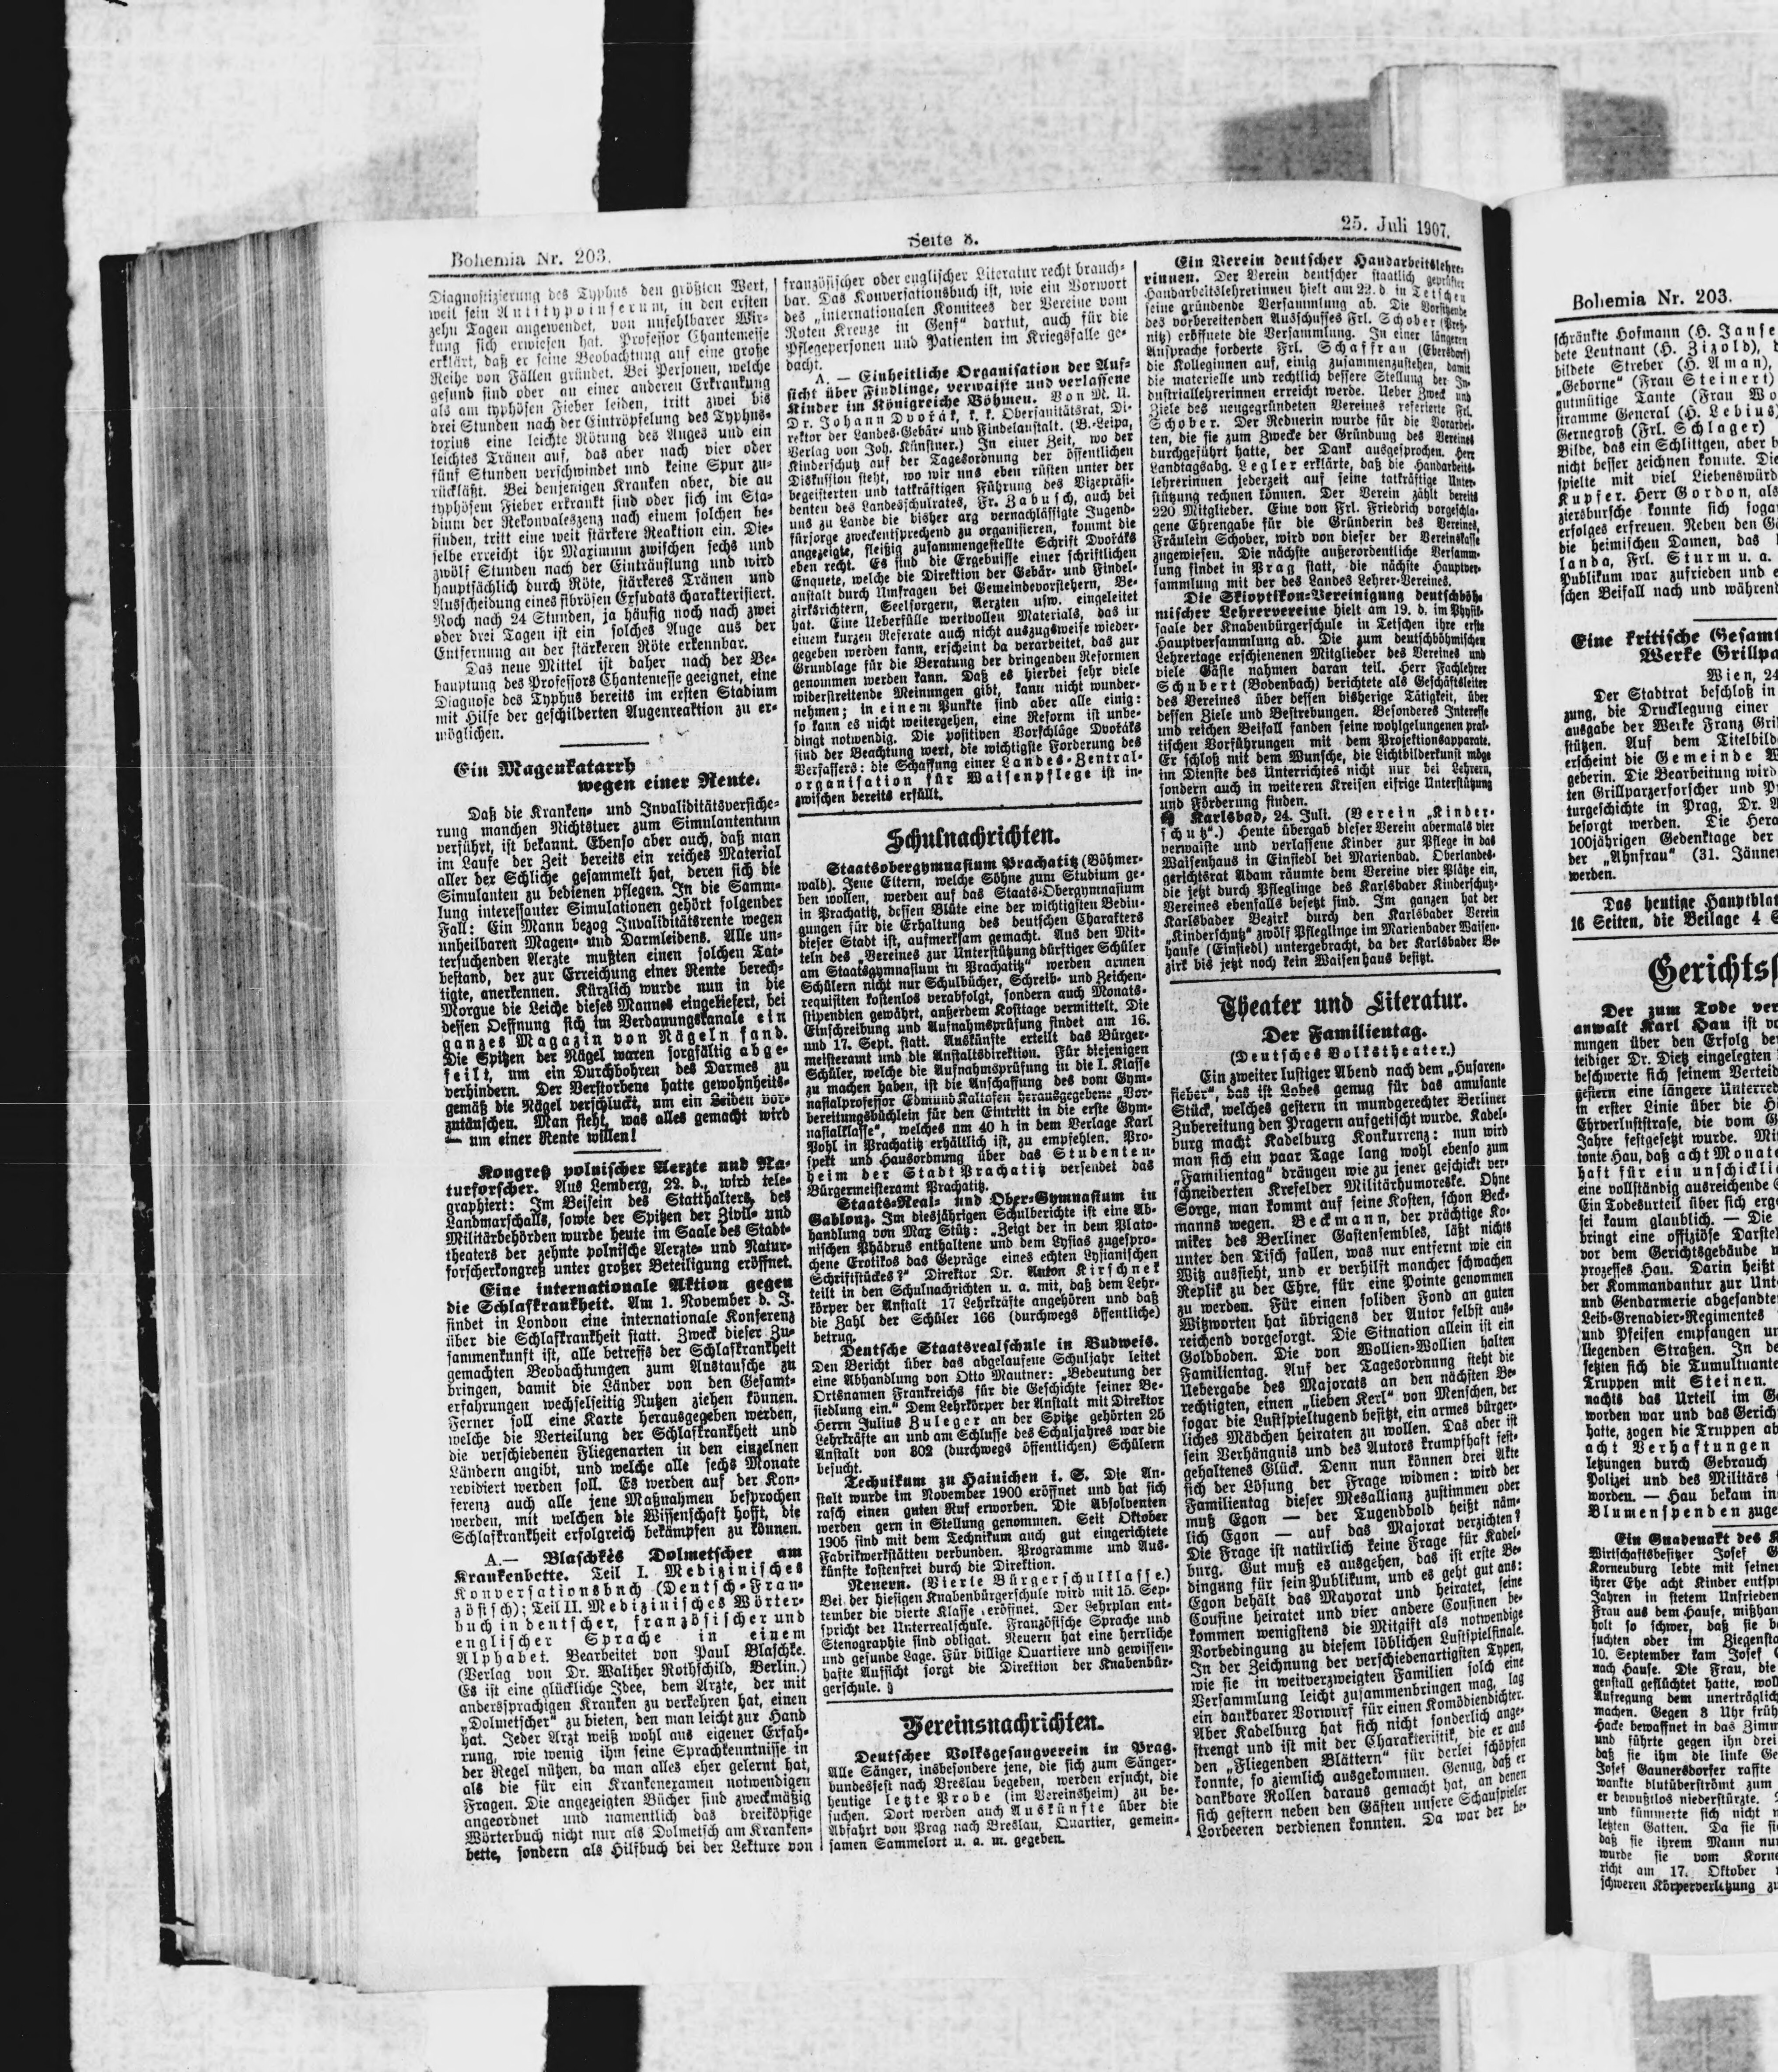 Bohemia Nr. 203.
Seite 8.
25. Juli 1907.
Diagnostizierung des Typhus den größten Wert,
weil sein Antitypoinserum, in den ersten
zehn Tagen angewendet, von unfehlbarer Wir-
kung sich erwiesen hat. Professor Chantemesse
erklärt, daß er seine Beobachtung auf eine große
Reihe von Fällen gründet. Bei Personen, welche
gesund sind oder an einer anderen Erkrankung
als am typhösen Fieber leiden, tritt zwei bis
drei Stunden nach der Eintröpfelung des Typhus-
toxius eine leichte Rötung des Auges und ein
leichtes Tränen auf, das aber nach vier oder
fünf Stunden verschwindet und keine Spur zu-
rückläßt. Bei denjenigen Kranken aber, die an
typhösem Fieber erkrankt sind oder sich im Sta-
dium der Rekonvaleszenz nach einem solchen be-
finden, tritt eine weit stärkere Reaktion ein. Die-
selbe erreicht ihr Maximum zwischen sechs und
zwölf Stunden nach der Einträuflung und wird
hauptsächlich durch Röte, stärkeres Tränen und
Ausscheidung eines fibrösen Exsudats charakterisiert.
Noch nach 24 Stunden, ja häufig noch nach zwei
oder drei Tagen ist ein solches Auge aus der
Entfernung an der stärkeren Röte erkennbar.
Das neue Mittel ist daher nach der Be-
hauptung des Professors Chantemesse geeignet, eine
Diagnose des Typhus bereits im ersten Stadium
mit Hilfe der geschilderten Augenreaktion zu er-
möglichen.
Ein Magenkatarrh
wegen einer Rente.
Daß die Kranken- und Invaliditätsversiche-
rung manchen Nichtstuer zum Simulantentum
verführt, ist bekannt. Ebenso aber auch, daß man
im Laufe der Zeit bereits ein reiches Material
aller der Schliche gesammelt hat, deren sich die
Simulanten zu bedienen pflegen. In die Samm-
lung interessanter Simulationen gehört folgender
Fall: Ein Mann bezog Invaliditätsrente wegen
unheilbaren Magen- und Darmleidens. Alle un-
tersuchenden Aerzte mußten einen solchen Tat-
bestand, der zur Erreichung einer Rente berech-
tigte, anerkennen. Kürzlich wurde nun in die
Morgue die Leiche dieses Mannes eingeliefert, bei
dessen Oeffnung sich im Verdauungskanale ein
ganzes Magazin von Nägeln fand.
Die Spitzen der Nägel waren sorgfältig abge-
feilt, um ein Durchbohren des Darmes zu
verhindern. Der Verstorbene hatte gewohnheits-
gemäß die Nägel verschluckt, um ein Leiden vor-
zutäuschen. Man sieht, was alles gemacht wird
— um einer Rente willen!
Kongreß polnischer Aerzte und Na-
turforscher. Aus Lemberg, 22. d., wird tele-
graphiert: Im Beisein des Statthalters, des
Landmarschalls, sowie der Spitzen der Zivil- und
Militärbehörden wurde heute im Saale des Stadt-
theaters der zehnte polnische Aerzte- und Natur-
forscherkongreß unter großer Beteiligung eröffnet.
Eine internationale Aktion gegen
die Schlafkrankheit. Am 1. November d. J.
findet in London eine internationale Konferenz
über die Schlafkrankheit statt. Zweck dieser Zu-
sammenkunft ist, alle betreffs der Schlafkrankheit
gemachten Beobachtungen zum Austausche zu
bringen, damit die Länder von den Gesamt-
erfahrungen wechselseitig Nutzen ziehen können.
Ferner soll eine Karte herausgegeben werden,
welche die Verteilung der Schlafkrankheit und
die verschiedenen Fliegenarten in den einzelnen
Ländern angibt, und welche alle sechs Monate
revidiert werden soll. Es werden auf der Kon-
ferenz auch alle jene Maßnahmen besprochen
werden, mit welchen die Wissenschaft hofft, die
Schlafkrankheit erfolgreich bekämpfen zu können.
A.— Blaschkes Dolmetscher am
Krankenbette. Teil I. Medizinisches
Konversationsbuch (Deutsch-Fran-
zösisch); Teil II. Medizinisches Wörter-
buch in deutscher, französischer und
englischer Sprache in einem
Alphabet. Bearbeitet von Paul Blaschke.
(Verlag von Dr. Walther Rothschild, Berlin.)
Es ist eine glückliche Idee, dem Arzte, der mit
andersprachigen Kranken zu verkehren hat, einen
„Dolmetscher“ zu bieten, den man leicht zur Hand
hat. Jeder Arzt weiß wohl aus eigener Erfah-
rung, wie wenig ihm seine Sprachkenntnisse in
der Regel nützen, da man alles eher gelernt hat,
als die für ein Krankenexamen notwendigen
Fragen. Die angezeigten Bücher sind zweckmäßig
angeordnet und namentlich das dreiköpfige
Wörterbuch nicht nur als Dolmetsch am Kranken-
bette, sondern als Hilfbuch bei der Lekture von
französischer oder englischer Literatur recht brauch-
bar. Das Konversationsbuch ist, wie ein Vorwort
des „internationalen Komitees der Vereine vom
Roten Kreuze in Genf“ dartut, auch für die
Pflegepersonen und Patienten im Kriegsfalle ge-
dacht.
A. — Einheitliche Organisation der Auf-
sicht über Findlinge, verwaiste und verlassene
Kinder im Königreiche Böhmen. Von M. U.
Dr. Johann Dvořák, k. k. Obersanitätsrat, Di-
rektor der Landes-Gebär- und Findelanstalt. (B.-Leipa,
Verlag von Joh. Künstner.) In einer Zeit, wo der
Kinderschutz auf der Tagesordnung der öffentlichen
Diskussion steht, wo wir uns eben rüsten unter der
begeisterten und tatkräftigen Führung des Vizepräsi-
denten des Landesschulrates, Fr. Zabusch, auch bei
uns zu Lande die bisher arg vernachlässigte Jugend-
fürsorge zweckentsprechend zu organisieren, kommt die
angezeigte, fleißig zusammengestellte Schrift Dvořáks
eben recht. Es sind die Ergebnisse einer schriftlichen
Enquete, welche die Direktion der Gebär- und Findel-
anstalt durch Umfragen bei Gemeindevorstehern, Be-
zirksrichtern, Seelsorgern, Aerzten usw. eingeleitet
hat. Eine Ueberfülle wertvollen Materials, das in
einem kurzen Referate auch nicht auszugsweise wieder-
gegeben werden kann, erscheint da verarbeitet, das zur
Grundlage für die Beratung der dringenden Reformen
genommen werden kann. Daß es hierbei sehr viele
widerstreitende Meinungen gibt, kann nicht wunder-
nehmen; in einem Punkte sind aber alle einig:
so kann es nicht weitergehen, eine Reform ist unbe-
dingt notwendig. Die positiven Vorschläge Dvořáks
sind der Beachtung wert, die wichtigste Forderung des
Verfassers: die Schaffung einer Landes-Zentral-
organisation für Waisenpflege ist in-
zwischen bereits erfüllt.
Schulnachrichten.
Staatsobergymnasium Prachatitz (Böhmer-
wald). Jene Eltern, welche Söhne zum Studium ge-
ben wollen, werden auf das Staats-Obergymnasium
in Prachatitz, dessen Blüte eine der wichtigsten Bedin-
gungen für die Erhaltung des deutschen Charakters
dieser Stadt ist, aufmerksam gemacht. Aus den Mit-
teln des „Vereines zur Unterstützung dürftiger Schüler
am Staatsgymnasium in Prachatitz“ werden armen
Schülern nicht nur Schulbücher, Schreib- und Zeichen-
requisiten kostenlos verabfolgt, sondern auch Monats-
stipendien gewährt, außerdem Kosttage vermittelt. Die
Einschreibung und Aufnahmsprüfung findet am 16.
und 17. Sept. statt. Auskünfte erteilt das Bürger-
meisteramt und die Anstaltsdirektion. Für diejenigen
Schüler, welche die Aufnahmsprüfung in die I. Klasse
zu machen haben, ist die Anschaffung des vom Gym-
nasialprofessor Edmund Kaltofen herausgegebene „Vor-
bereitungsbüchlein für den Eintritt in die erste Gym-
nasialklasse“, welches um 40 h in dem Verlage Karl
Pohl in Prachatitz erhältlich ist, zu empfehlen. Pro-
spekt und Hausordnung über das Studenten-
heim der Stadt Prachatitz versendet das
Bürgermeisteramt Prachatitz.
Staats-Real- und Ober-Gymnasium in
Gablonz. Im diesjährigen Schulberichte ist eine Ab-
handlung von Max Stütz: „Zeigt der in dem Plato-
nischen Phädrus enthaltene und dem Lysias zugespro-
chene Erotikos das Gepräge eines echten Lysianischen
Schriftstückes?“ Direktor Dr. Anton Kirschnek
teilt in den Schulnachrichten u. a. mit, daß dem Lehr-
körper der Anstalt 17 Lehrkräfte angehören und daß
die Zahl der Schüler 166 (durchwegs öffentliche)
betrug.
Deutsche Staatsrealschule in Budweis.
Den Bericht über das abgelaufene Schuljahr leitet
eine Abhandlung von Otto Mautner: „Bedeutung der
Ortsnamen Frankreichs für die Geschichte seiner Be-
siedlung ein.“ Dem Lehrkörper der Anstalt mit Direktor
Herrn Julius Zuleger an der Spitze gehörten 25
Lehrkräfte an und am Schlusse des Schuljahres war die
Anstalt von 802 (durchwegs öffentlichen) Schülern
besucht.
Technikum zu Hainichen i. S. Die An-
stalt wurde im November 1900 eröffnet und hat sich
rasch einen guten Ruf erworben. Die Absolventen
werden gern in Stellung genommen. Seit Oktober
1905 sind mit dem Technikum auch gut eingerichtete
Fabrikwerkstätten verbunden. Programme und Aus-
künfte kostenfrei durch die Direktion.
Neuern. (Vierte Bürgerschulklasse.)
Bei der hiesigen Knabenbürgerschule wird mit 15. Sep-
tember die vierte Klasse eröffnet. Der Lehrplan ent-
spricht der Unterrealschule. Französische Sprache und
Stenographie sind obligat. Neuern hat eine herrliche
und gesunde Lage. Für billige Quartiere und gewissen-
hafte Aufsicht sorgt die Direktion der Knabenbür-
gerschule.
Vereinsnachrichten.
Deutscher Volksgesangverein in Prag.
Alle Sänger, insbesondere jene, die sich zum Sänger-
bundesfest nach Breslau begeben, werden ersucht, die
heutige letzte Probe (im Vereinsheim) zu be-
suchen. Dort werden auch Auskünfte über die
Abfahrt von Prag nach Breslau, Quartier, gemein-
samen Sammelort u. a. m. gegeben.
Ein Verein deutscher Handarbeitslehre-
rinnen. Der Verein deutscher staatlich geprüfter
Handarbeitslehrerinnen hielt am 22. d. in Tetschen
seine gründende Versammlung ab. Die Vorsitzende
des vorbereitenden Ausschusses Frl. Schober (Preß-
nitz) eröffnete die Versammlung. In einer längeren
Ansprache forderte Frl. Schaffran (Ebersdorf)
die Kolleginnen auf, einig zusammenzustehen, damit
die materielle und rechtlich bessere Stellung der In-
dustriallehrerinnen erreicht werde. Ueber Zweck und
Ziele des neugegründeten Vereines referierte Frl.
Schober. Der Rednerin wurde für die Vorarbei-
ten, die sie zum Zwecke der Gründung des Vereines
durchgeführt hatte, der Dank ausgesprochen. Herr
Landtagsabg. Legler erklärte, daß die Handarbeits-
lehrerinnen jederzeit auf seine tatkräftige Unter-
stützung rechnen können. Der Verein zählt bereits
220 Mitglieder. Eine von Frl. Friedrich vorgeschla-
gene Ehrengabe für die Gründerin des Vereines,
Fräulein Schober, wird von dieser der Vereinskasse
zugewiesen. Die nächste außerordentliche Versamm-
lung findet in Prag statt, die nächste Hauptver-
sammlung mit der des Landes Lehrer-Vereines.
Die Skioptikon-Vereinigung deutschböh-
mischer Lehrervereine hielt am 19. d. im Physik-
saale der Knabenbürgerschule in Tetschen ihre erste
Hauptversammlung ab. Die zum deutschböhmischen
Lehrertage erschienenen Mitglieder des Vereines und
viele Gäste nahmen daran teil. Herr Fachlehrer
Schubert (Bodenbach) berichtete als Geschäftsleiter
des Vereines über dessen bisherige Tätigkeit, über
dessen Ziele und Bestrebungen. Besonderes Interesse
und reichen Beifall fanden seine wohlgelungenen prak-
tischen Vorführungen mit dem Projektionsapparate.
Er schloß mit dem Wunsche, die Lichtbilderkunst möge
im Dienste des Unterrichtes nicht nur bei Lehrern,
sondern auch in weiteren Kreisen eifrige Unterstützung
und Förderung finden.
Karlsbad, 24. Juli. (Verein „Kinder-
schutz“.) Heute übergab dieser Verein abermals vier
verwaiste und verlassene Kinder zur Pflege in das
Waisenhaus in Einsiedl bei Marienbad. Oberlandes-
gerichtsrat Adam räumte dem Vereine vier Plätze ein,
die jetzt durch Pfleglinge des Karlsbader Kinderschutz-
Vereines ebenfalls besetzt sind. Im ganzen hat der
Karlsbader Bezirk durch den Karlsbader Verein
„Kinderschutz“ zwölf Pfleglinge im Marienbader Waisen-
hause (Einsiedl) untergebracht, da der Karlsbader Be-
zirk bis jetzt noch kein Waisenhaus besitzt.
Theater und Literatur.
Der Familientag.
(Deutsches Volkstheater.)
Ein zweiter lustiger Abend nach dem „Husaren-
fieber“, das ist Lobes genug für das amusante
Stück, welches gestern in mundgerechter Berliner
Zubereitung den Pragern aufgetischt wurde. Kadel-
burg macht Kadelburg Konkurrenz: nun wird
man sich ein paar Tage lang wohl ebenso zum
„Familientag“ drängen wie zu jener geschickt ver-
schneiderten Krefelder Militärhumoreske. Ohne
Sorge, man kommt auf seine Kosten, schon Beck-
manns wegen. Beckmann, der prächtige Ko-
miker des Berliner Gastensembles, läßt nichts
unter den Tisch fallen, was nur entfernt wie ein
Witz aussieht, und er verhilft mancher schwachen
Replik zu der Ehre, für eine Pointe genommen
zu werden. Für einen soliden Fond an guten
Witzworten hat übrigens der Autor selbst aus-
reichend vorgesorgt. Die Situation allein ist ein
Goldboden. Die von Wollien-Wollien halten
Familientag. Auf der Tagesordnung steht die
Uebergabe des Majorats an den nächsten Be-
rechtigten, einen „lieben Kerl“ von Menschen, der
sogar die Lustspieltugend besitzt, ein armes bürger-
liches Mädchen heiraten zu wollen. Das aber ist
sein Verhängnis und des Autors krampfhaft fest-
gehaltenes Glück. Denn nun können drei Akte
sich der Lösung der Frage widmen: wird der
Familientag dieser Mesallianz zustimmen oder
muß Egon — der Tugendbold heißt näm-
lich Egon — auf das Majorat verzichten?
Die Frage ist natürlich keine Frage für Kadel-
burg. Gut muß es ausgehen, das ist erste Be-
dingung für sein Publikum, und es geht gut aus:
Egon behält das Mayorat und heiratet, seine
Cousine heiratet und vier andere Cousinen be-
kommen wenigstens die Mitgift als notwendige
Vorbedingung zu diesem löblichen Lustspielfinale.
In der Zeichnung der verschiedenartigsten Typen,
wie sie in weitverzweigten Familien solch eine
Versammlung leicht zusammenbringen mag, lag
ein dankbarer Vorwurf für einen Komödiendichter.
Aber Kadelburg hat sich nicht sonderlich ange-
strengt und ist mit der Charakteristik, die er aus
den „Fliegenden Blättern“ für derlei schöpfen
konnte, so ziemlich ausgekommen. Genug, daß er
dankbare Rollen daraus gemacht hat, an denen
sich gestern neben den Gästen unsere Schauspieler
Lorbeeren verdienen konnten. Da war der be-
Bohemia Nr. 203.
schränkte Hofmann (H. Janse
dete Leutnant (H. Zizold),
bildete Streber (H. Aman),
„Geborne“ (Frau Steinert)
gutmütige Tante (Frau Wo
stramme General (H. Lebius)
Gernegroß (Frl. Schlager)
Bilde, das ein Schlittgen, aber b
nicht besser zeichnen konnte. Die
spielte mit viel Liebenswürd
Kupfer. Herr Gordon, als
ziersbursche konnte sich soga
erfolges erfreuen. Neben den Gä
die heimischen Damen, das
landa, Frl. Sturm u. a.
Publikum war zufrieden und e
schen Beifall nach und während
Eine kritische Gesamt
Werke Grillpa
Wien, 24
Der Stadtrat beschloß in
zung, die Drucklegung einer
ausgabe der Werke Franz Gril
stützen. Auf dem Titelbild
erscheint die Gemeinde W
geberin. Die Bearbeitung wird
ten Grillparzerforscher und P
turgeschichte in Prag, Dr. A
besorgt werden. Die Hera
100jährigen Gedenktage der
der „Ahnfrau“ (31. Jänner
werden.
Das heutige Hauptblat
16 Seiten, die Beilage 4 S
Gerichtss
Der zum Tode ver
anwalt Karl Hau ist vo
nungen über den Erfolg de
teidiger Dr. Dietz eingelegten
beschwerte sich seinem Verteid
gestern eine längere Unterred
in erster Linie über die H
Ehrverluststrafe, die vom G
Jahre festgesetzt wurde. Mit
tonte Hau, daß acht Monate
haft für ein unschickli
eine vollständig ausreichende
Ein Todesurteil über sich erge
sei kaum glaublich. — Die
bringt eine offiziöse Darstel
vor dem Gerichtsgebäude w
prozesses Hau. Darin heißt
der Kommandantur zur Unt
und Gendarmerie abgesandte
Leib-Grenadier-Regimentes
und Pfeifen empfangen un
liegenden Straßen. In de
setzten sich die Tumultuante
Truppen mit Steinen.
nachts das Urteil im Ge
worden war und das Gerich
hatte, zogen die Truppen ab
acht Verhaftungen
letzungen durch Gebrauch
Polizei und des Militärs
worden. — Hau bekam in
Blumenspenden zuge
Ein Gnadenakt des K
Wirtschaftsbesitzer Josef G
Korneuburg lebte mit seiner
ihrer Ehe acht Kinder entspr
Jahren in stetem Unfrieden
Frau aus dem Hause, mißhan
holt so schwer, daß sie be
suchten oder im Ziegenst
10. September kam Josef G
nach Hause. Die Frau, die
genstall geflüchtet hatte, woll
Aufregung dem unerträglich
machen. Gegen 3 Uhr früh
Hacke bewaffnet in das Zimm
und führte gegen ihn drei
daß sie ihm die linke Ge
Josef Gaunersdorfer raffte
wankte blutüberströmt zum
er bewußtlos niederstürzte.
und kümmerte sich nicht
letzten Gatten. Da sie si
daß sie ihrem Mann nur
wurde sie vom Korne
richt am 17. Oktober
schweren Körperverletzung zu